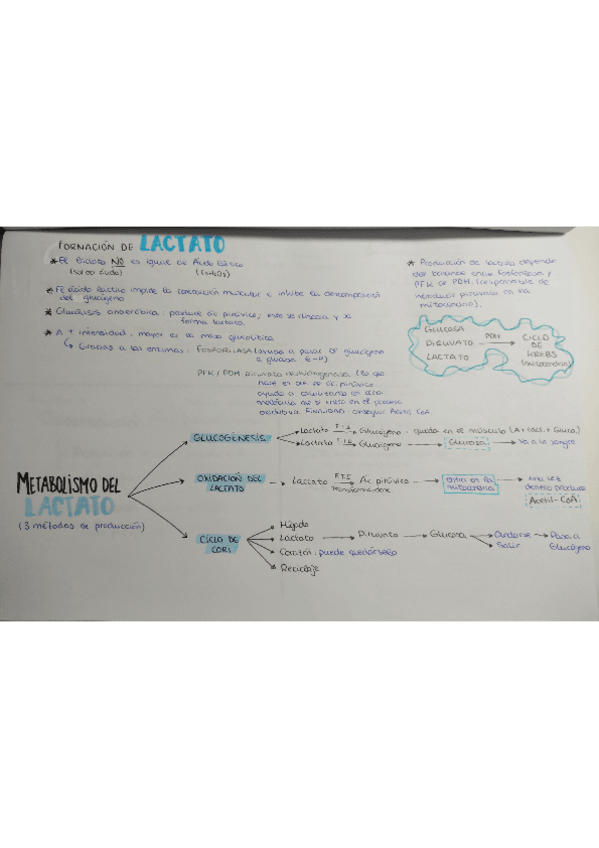 FORMACIÓN DE LACTATO
* El lactato NO es igual al Ácido láctico
* El ácido láctico impide la contracción muscular e inhibe la descomposición
del glucógeno
* Glucólisis anaeróbica: produce ác pirúvico, este se disocia y se
forma lactato.
* A ↑ intensidad, mayor es la masa glucolítica
↳ Gracias a las enzimas: FOSFORILASA (ayuda a pasar el glucógeno
a glucosa 6-P)
PFK / PDH piruvato deshidrogenasa (lo que
hace es que el ác. pirúvico
ayuda a
oxidativa. Finalidad: conseguir Acetil CoA
* Producción de lactato depende
del balance entre fosforilasa y
PFK de PDH (responsable de
introducir piruvato en la
mitocondria).
GLUCOSA
PIRUVATO
LACTATO
PDH →
CICLO
DE
KREBS
(mitocondria)
METABOLISMO DEL
LACTATO
(3 métodos de producción)
GLUCOGÉNESIS
Lactato → Glucógeno - queda en el músculo
Lactato → Glucógeno → Glucosa → Va a la sangre
OXIDACIÓN DEL
LACTATO
→ Lactato → Ác pirúvico → entra en la
mitocondria
→ una vez
dentro produce
Acetil-CoA
CICLO DE
CORI
Hígado
Lactato → Piruvato → Glucosa → Quedarse → Pasa a
Salir
Glucógeno
Corazón: puede quedárselo
Reciclaje